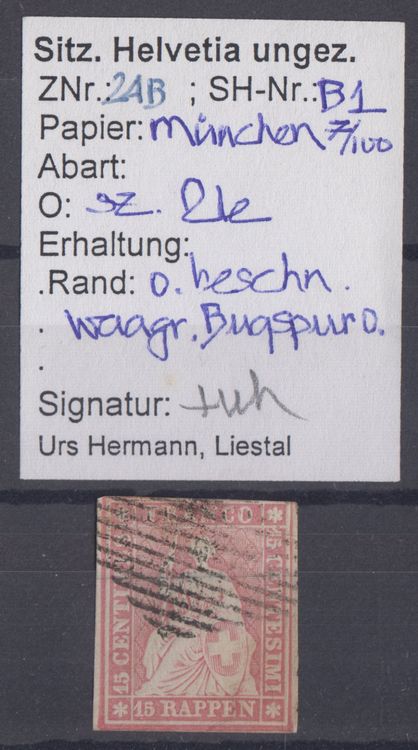 Sitz. Helvetia ungez.
ZNr.: 24B ; SH-Nr.: B1
Papier: München 7/100
Abart:
O: sz.
Erhaltung:
.Rand: o. beschn.
. waagr. Bugspur o.
.
Signatur:
Urs Hermann, Liestal
15 CENTI
15 CENTESIMI
15 RAPPEN